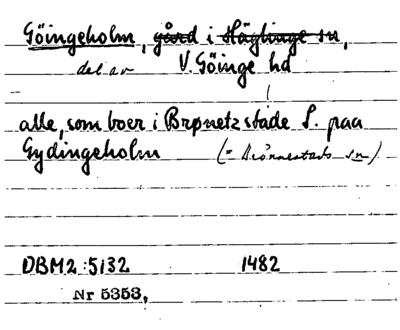 Göingeholm, gård i Häglinge sn,
del av V. Göinge hd
alle, som boer i Brønetzstade S. paa
Gydingeholm (= Brönnestads sn)
DBM2:5132 1482
Nr 5353,